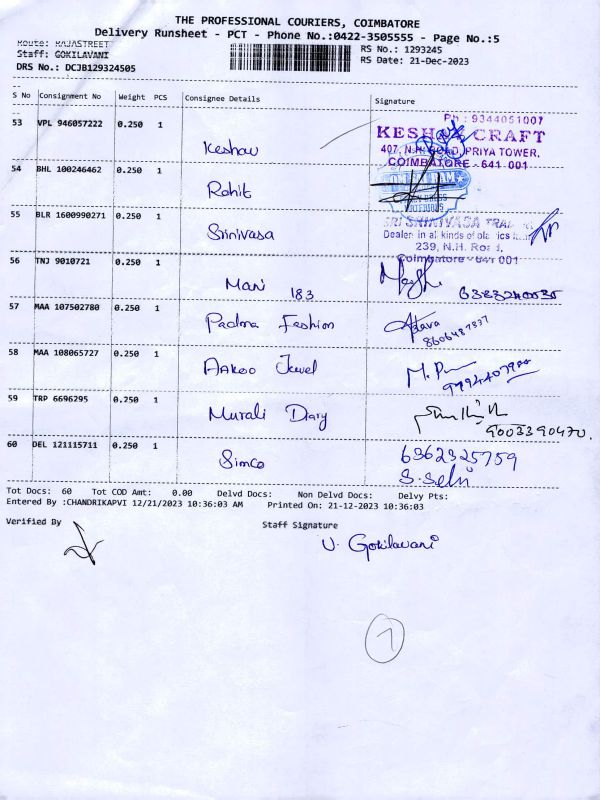 THE PROFESSIONAL COURIERS, COIMBATORE
Delivery Runsheet - PCT - Phone No.:0422-3505555 - Page No.:5
Route: RAJASTREET
Staff: GOKILAVANI
DRS No.: DCJB129324505
RS No.: 1293245
RS Date: 21-Dec-2023
S No Consignment No Weight PCS Consignee Details Signature
53 VPL 946057222 0.250 1
Keshav
Ph : 9344051007
KESHAV CRAFT
407, N.H. ROAD, PRIYA TOWER,
COIMBATORE - 641 001
54 BHL 100246462 0.250 1
Rohit
55 BLR 1600990271 0.250 1
Srinivasa
SRI SRINIVASA
Dealer in all kinds of plastics
239, N.H. Road,
Coimbatore - 641 001
56 TNJ 9010721 0.250 1
Mani 183
57 MAA 107502780 0.250 1
Padma Fashion
8606487837
58 MAA 108065727 0.250 1
Aakoo Jewel
59 TRP 6696295 0.250 1
Murali Diary
9003390470.
60 DEL 121115711 0.250 1
Simco
6362325759
S. Selvi
Tot Docs: 60 Tot COD Amt: 0.00 Delvd Docs: Non Delvd Docs: Delvy Pts:
Entered By :CHANDRIKAPVI 12/21/2023 10:36:03 AM Printed On: 21-12-2023 10:36:03
Verified By Staff Signature
V. Gokilavani
7